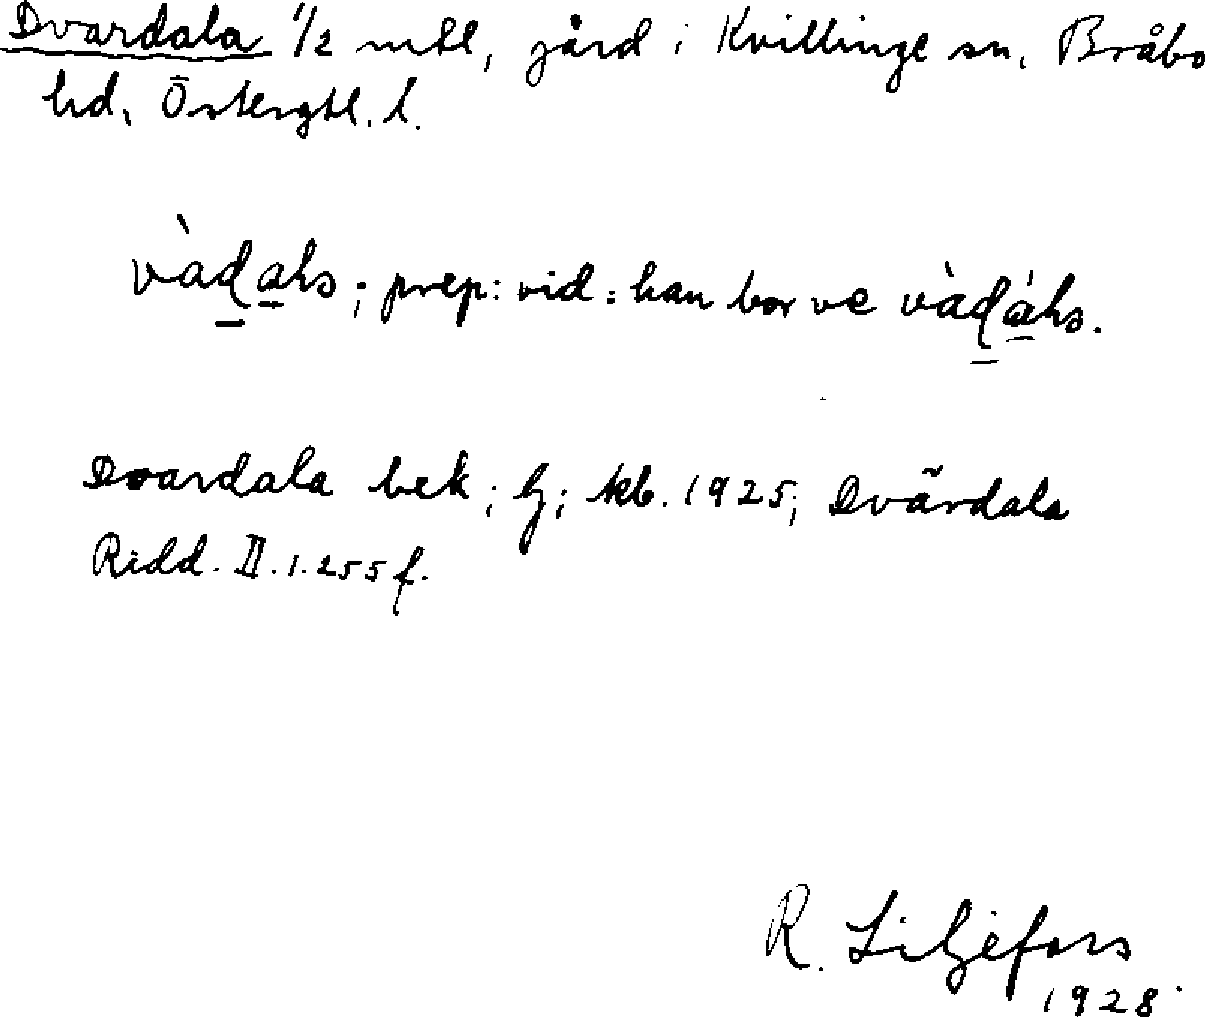 Dvardala 1/2 mtl, gård i Kvillinge sn, Bråbo
hd, Östergtl. l.
vàḏa̱ho; prep: vid: han bor ve vàḏá̱ho.
Dvardala bek; Gj; kb. 1925; Dvärdala
Ridd. II.1.255 f.
R. Liljefors
1928